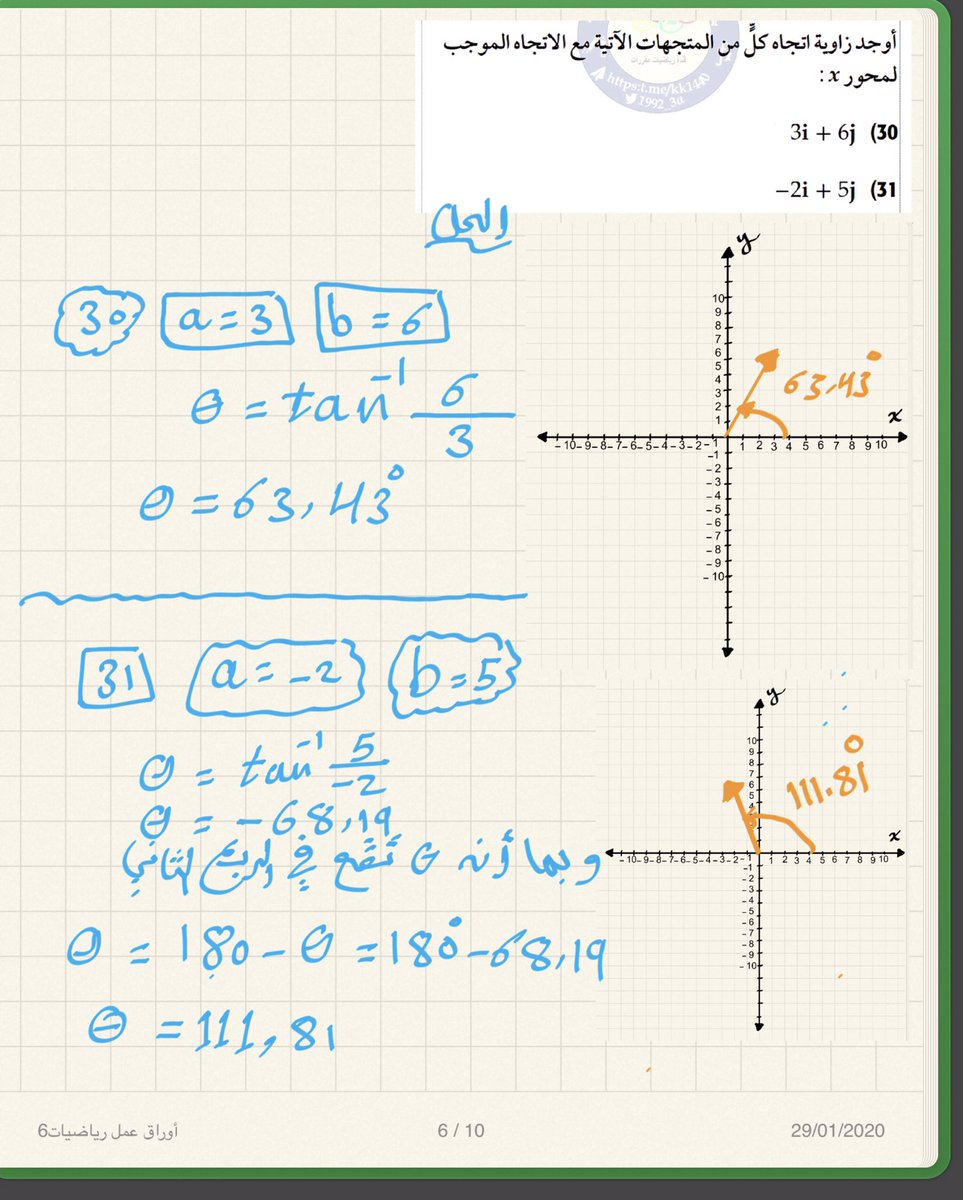 أوجد زاوية اتجاه كلٍّ من المتجهات الآتية مع الاتجاه الموجب
لمحور x :
https:t.me/kk1440
1992_3a
30) 3i + 6j
31) −2i + 5j
الحل
30 a = 3 b = 6
θ = tan⁻¹ 6/3
θ = 63,43°
y
10
9
8
7
6
5
4
3
2
1
63,43°
x
-10 -9 -8 -7 -6 -5 -4 -3 -2 -1 1 2 3 4 5 6 7 8 9 10
-1
-2
-3
-4
-5
-6
-7
-8
-9
-10
31 a = -2 b = 5
θ = tan⁻¹ 5/-2
θ = -68,19
وبما أنه θ تقع في الربع الثاني
θ = 180 - θ = 180° - 68,19
θ = 111,81
y
10
9
8
7
6
5
4
111.81°
x
-10 -9 -8 -7 -6 -5 -4 -3 -2 -1 1 2 3 4 5 6 7 8 9 10
-1
-2
-3
-4
-5
-6
-7
-8
-9
-10
أوراق عمل رياضيات6
6 / 10
29/01/2020